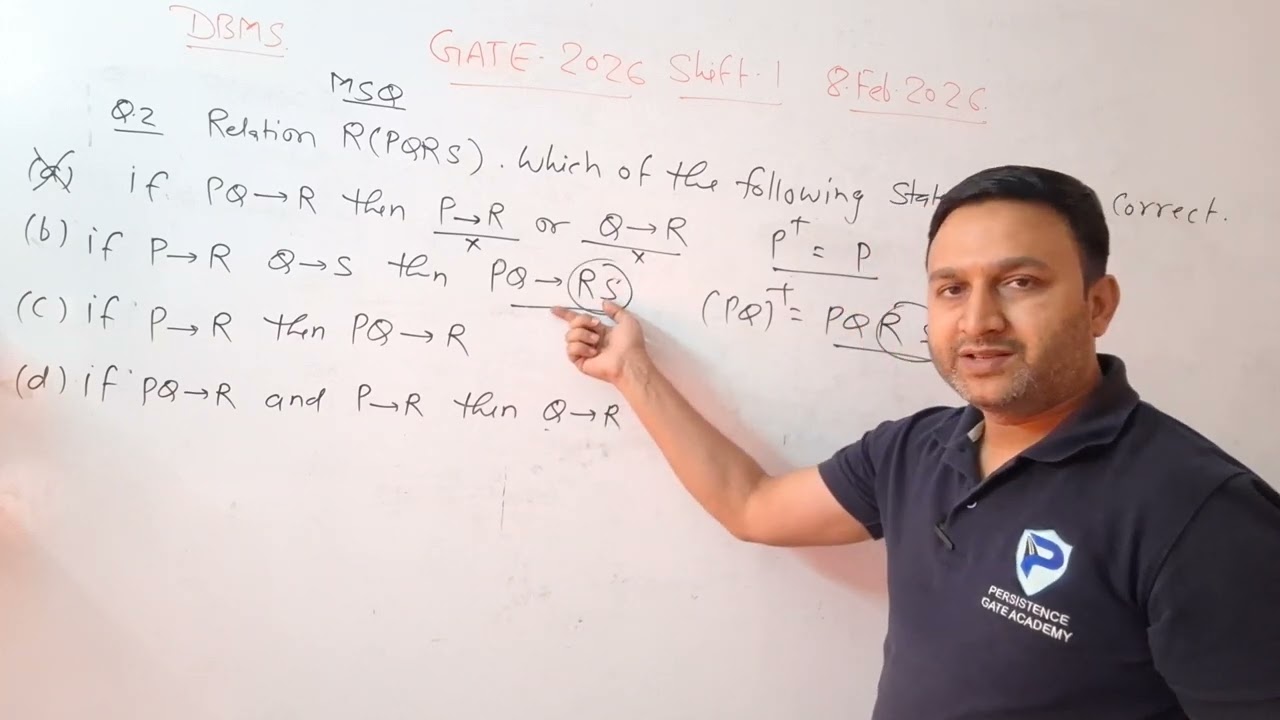 DBMS.
GATE 2026 Shift.1 8.Feb.2026.
MSQ
Q.2 Relation R(PQRS). Which of the following correct.
(a) if PQ→R then P→R or Q→R
x x
P⁺ = P
(b) if P→R Q→S then PQ→RS
(PQ)⁺ = PQR
(c) if P→R then PQ→R
(d) if PQ→R and P→R then Q→R
P
PERSISTENCE
GATE ACADEMY